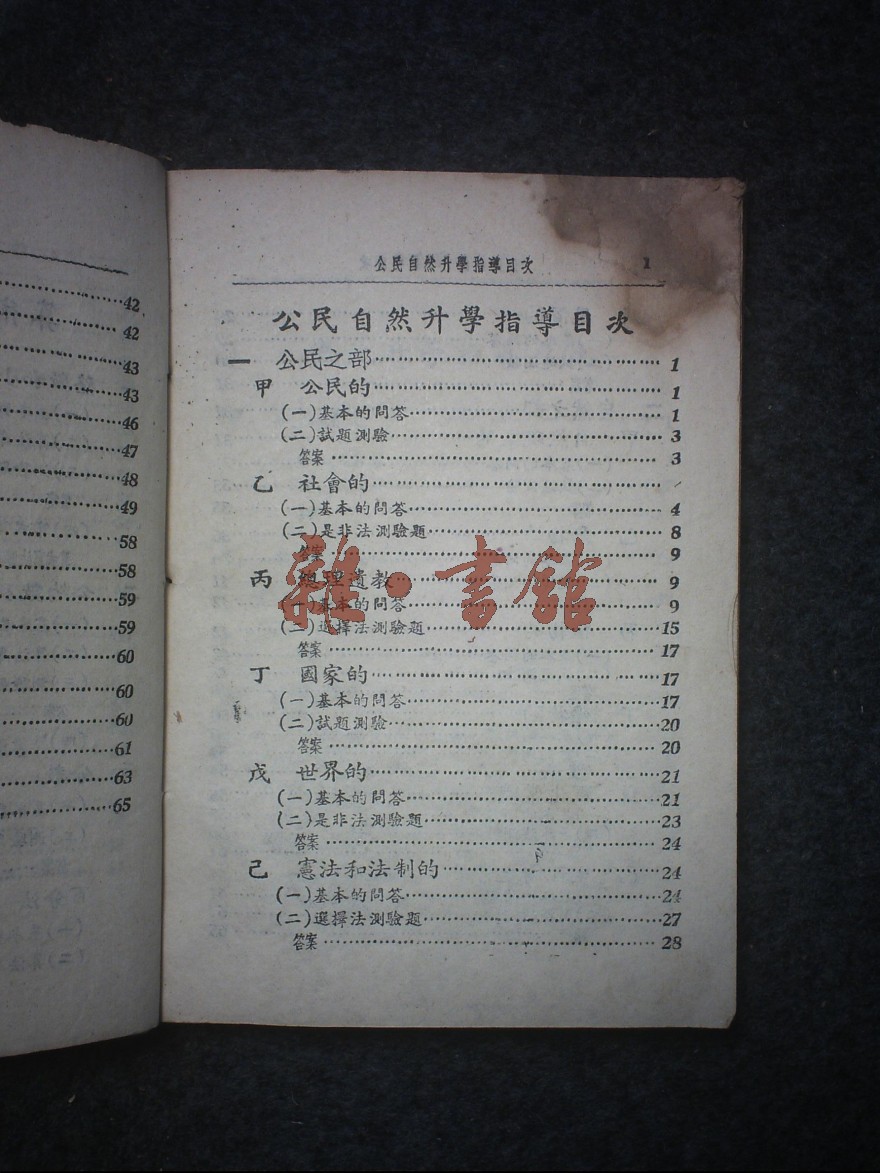 42
42
43
43
46
47
48
49
58
58
59
59
60
60
60
61
63
65
公民自然升學指導目次 1
公民自然升學指導目次
一 公民之部 1
甲 公民的 1
(一)基本的問答 1
(二)試題測驗 3
答案 3
乙 社會的
(一)基本的問答 4
(二)是非法測驗題 8
答案 9
丙 總理遺教 9
(一)基本的問答 9
(二)選擇法測驗題 15
答案 17
丁 國家的 17
(一)基本的問答 17
(二)試題測驗 20
答案 20
戊 世界的 21
(一)基本的問答 21
(二)是非法測驗題 23
答案 24
己 憲法和法制的 24
(一)基本的問答 24
(二)選擇法測驗題 27
答案 28
雜·書館